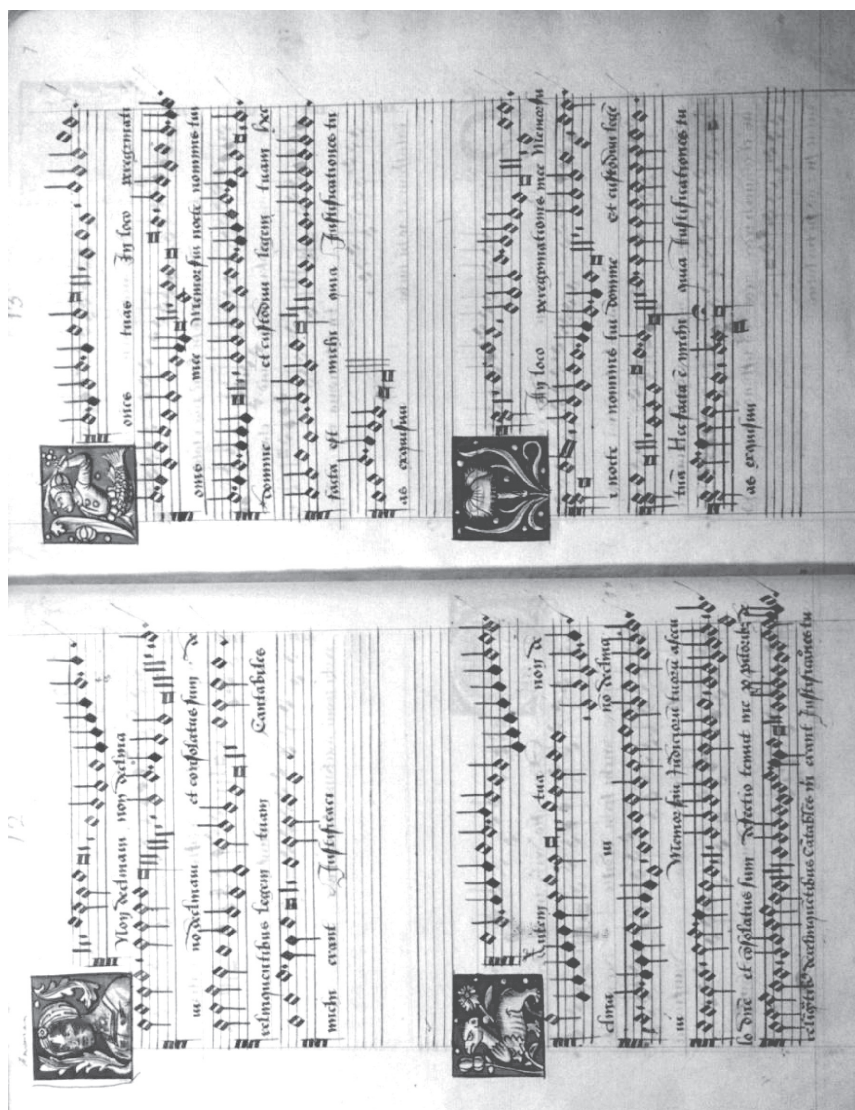 12
Non declinavi non declina
vi no declinavi et consolatus sum De
relinquentibus legem tuam Cantabiles
michi erant Justificaci
autem tua non de
clina vi no declina
vi Memor fui Judicioru tuoru a secu
lo dñe et cõsolatus sum defectio tenuit me de
Cãtabiles m erant Justificaciones tu
13
ones tuas In loco peregrinati
ones mee Memor fui nocte nominis tui
domine et custodivi legem tuam hec
facta est michi quia Justificationes tu
as exquisivi
In loco peregrinationis mee Memor fu
i nocte nominis tui domine et custodivi legẽ
tuã Hec facta ẽ michi quia Justificationes tu
as exquisivi